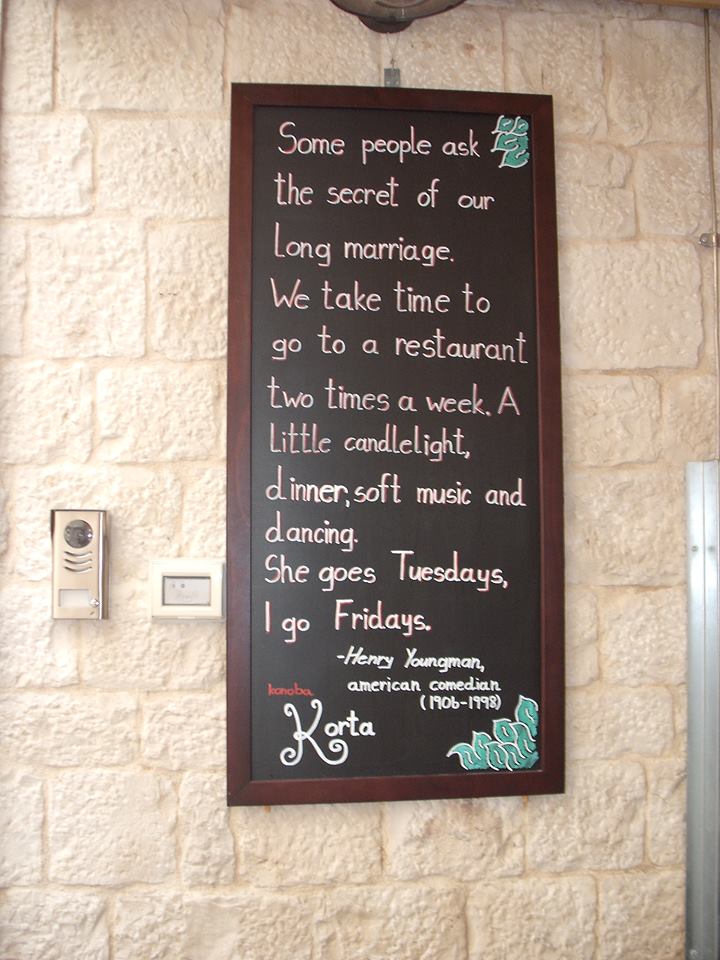 Some people ask
the secret of our
long marriage.
We take time to
go to a restaurant
two times a week. A
little candlelight,
dinner, soft music and
dancing.
She goes Tuesdays,
I go Fridays.
-Henry Youngman,
american comedian
(1906-1998)
konoba
Korta